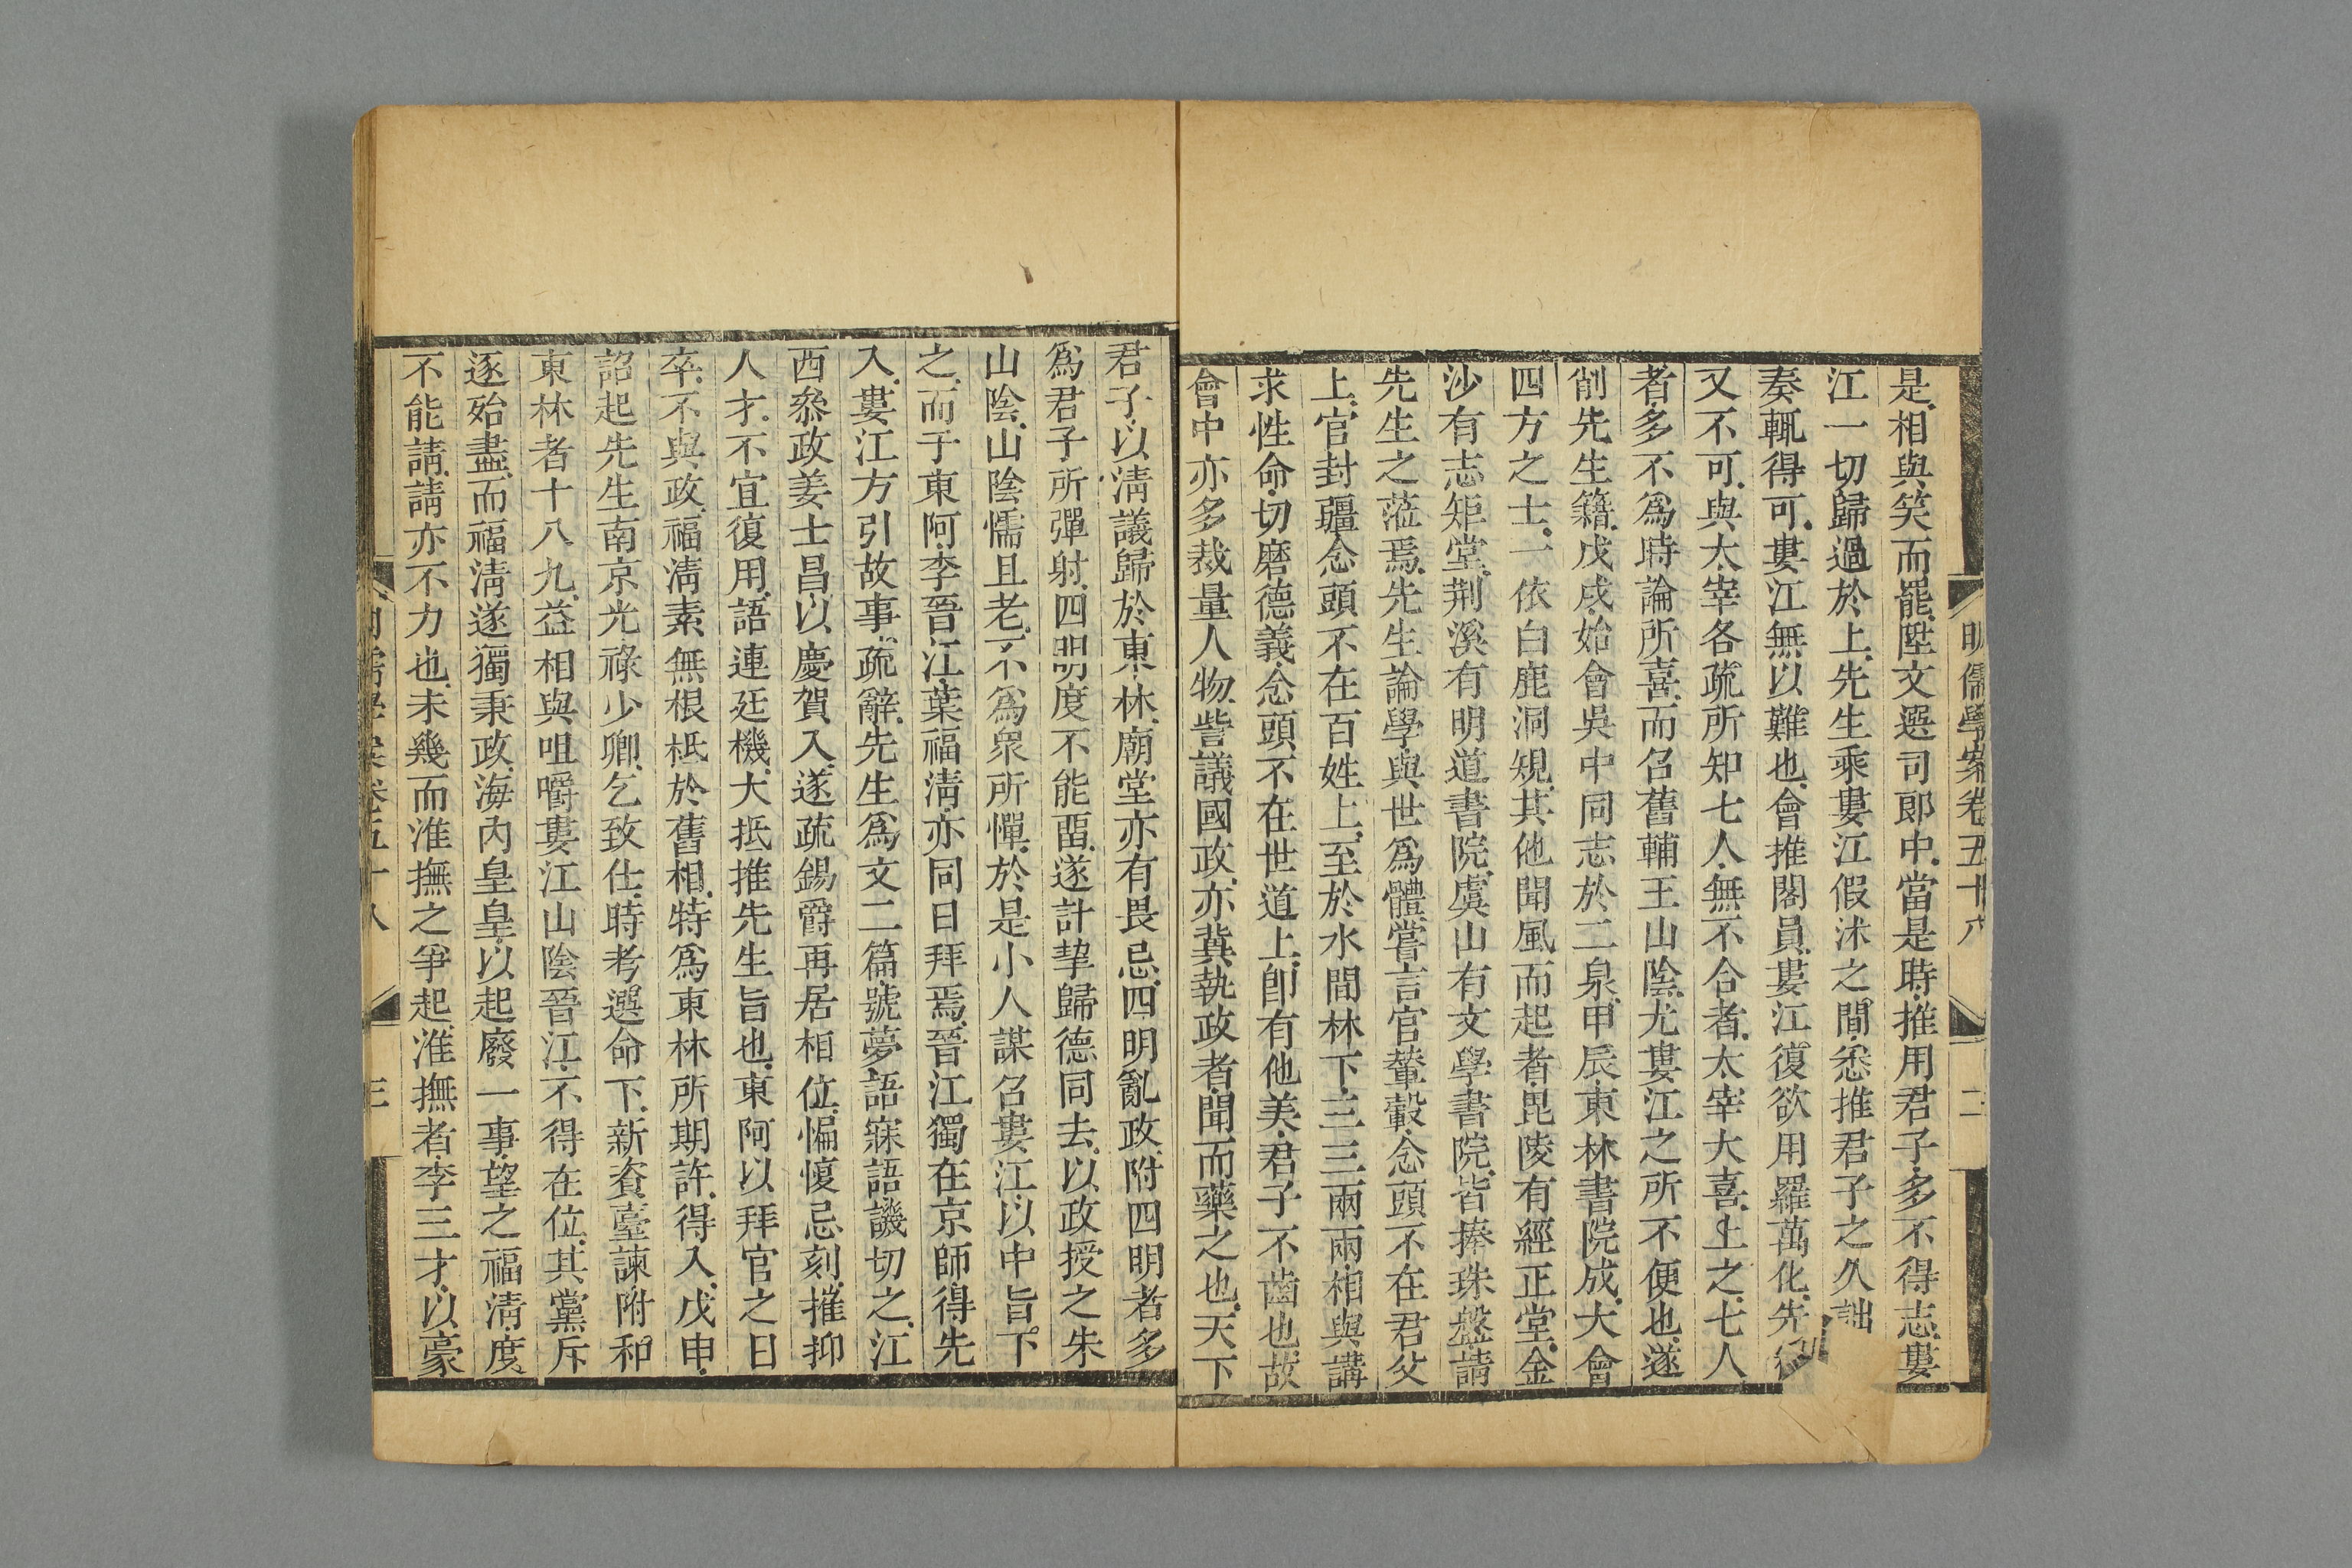 明儒學案卷五十八
二
是相與笑而罷陞文選司郎中當是時推用君子多不得志婁
江一切歸過於上先生乘婁江假沭之間悉推君子之久詘
奏輒得可婁江無以難也會推閣員婁江復欲用羅萬化先
又不可與太宰各疏所知七人無不合者太宰大喜上之七人
者多不爲時論所喜而召舊輔王山陰尤婁江之所不便也遂
削先生籍戊戌始會吳中同志於二泉甲辰東林書院成大會
四方之士一依白鹿洞規其他聞風而起者毘陵有經正堂金
沙有志矩堂荆溪有明道書院虞山有文學書院皆捧珠盤請
先生之蒞焉先生論學與世爲體嘗言官輦轂念頭不在君父
上官封疆念頭不在百姓上至於水間林下三三兩兩相與講
求性命切磨德義念頭不在世道上卽有他美君子不齒也故
會中亦多裁量人物訾議國政亦冀執政者聞而藥之也天下
君子以淸議歸於東林廟堂亦有畏忌四明亂政附四明者多
爲君子所彈射四明度不能畱遂計挈歸德同去以政授之朱
山陰山陰懦且老不爲衆所憚於是小人謀召婁江以中旨下
之而于東阿李晉江葉福淸亦同日拜焉晉江獨在京師得先
入婁江方引故事疏辭先生爲文二篇號夢語寐語譏切之江
西叅政姜士昌以慶賀入遂疏錫爵再居相位偏愎忌刻摧抑
人才不宜復用語連廷機大抵推先生旨也東阿以拜官之日
卒不與政福淸素無根柢於舊相特爲東林所期許得入戊申
詔起先生南京光祿少卿乞致仕時考選命下新資臺諫附和
東林者十八九益相與咀嚼婁江山陰晉江不得在位其黨斥
逐殆盡而福淸遂獨秉政海內皇皇以起廢一事望之福淸度
不能請請亦不力也未幾而淮撫之爭起淮撫者李三才以豪
三